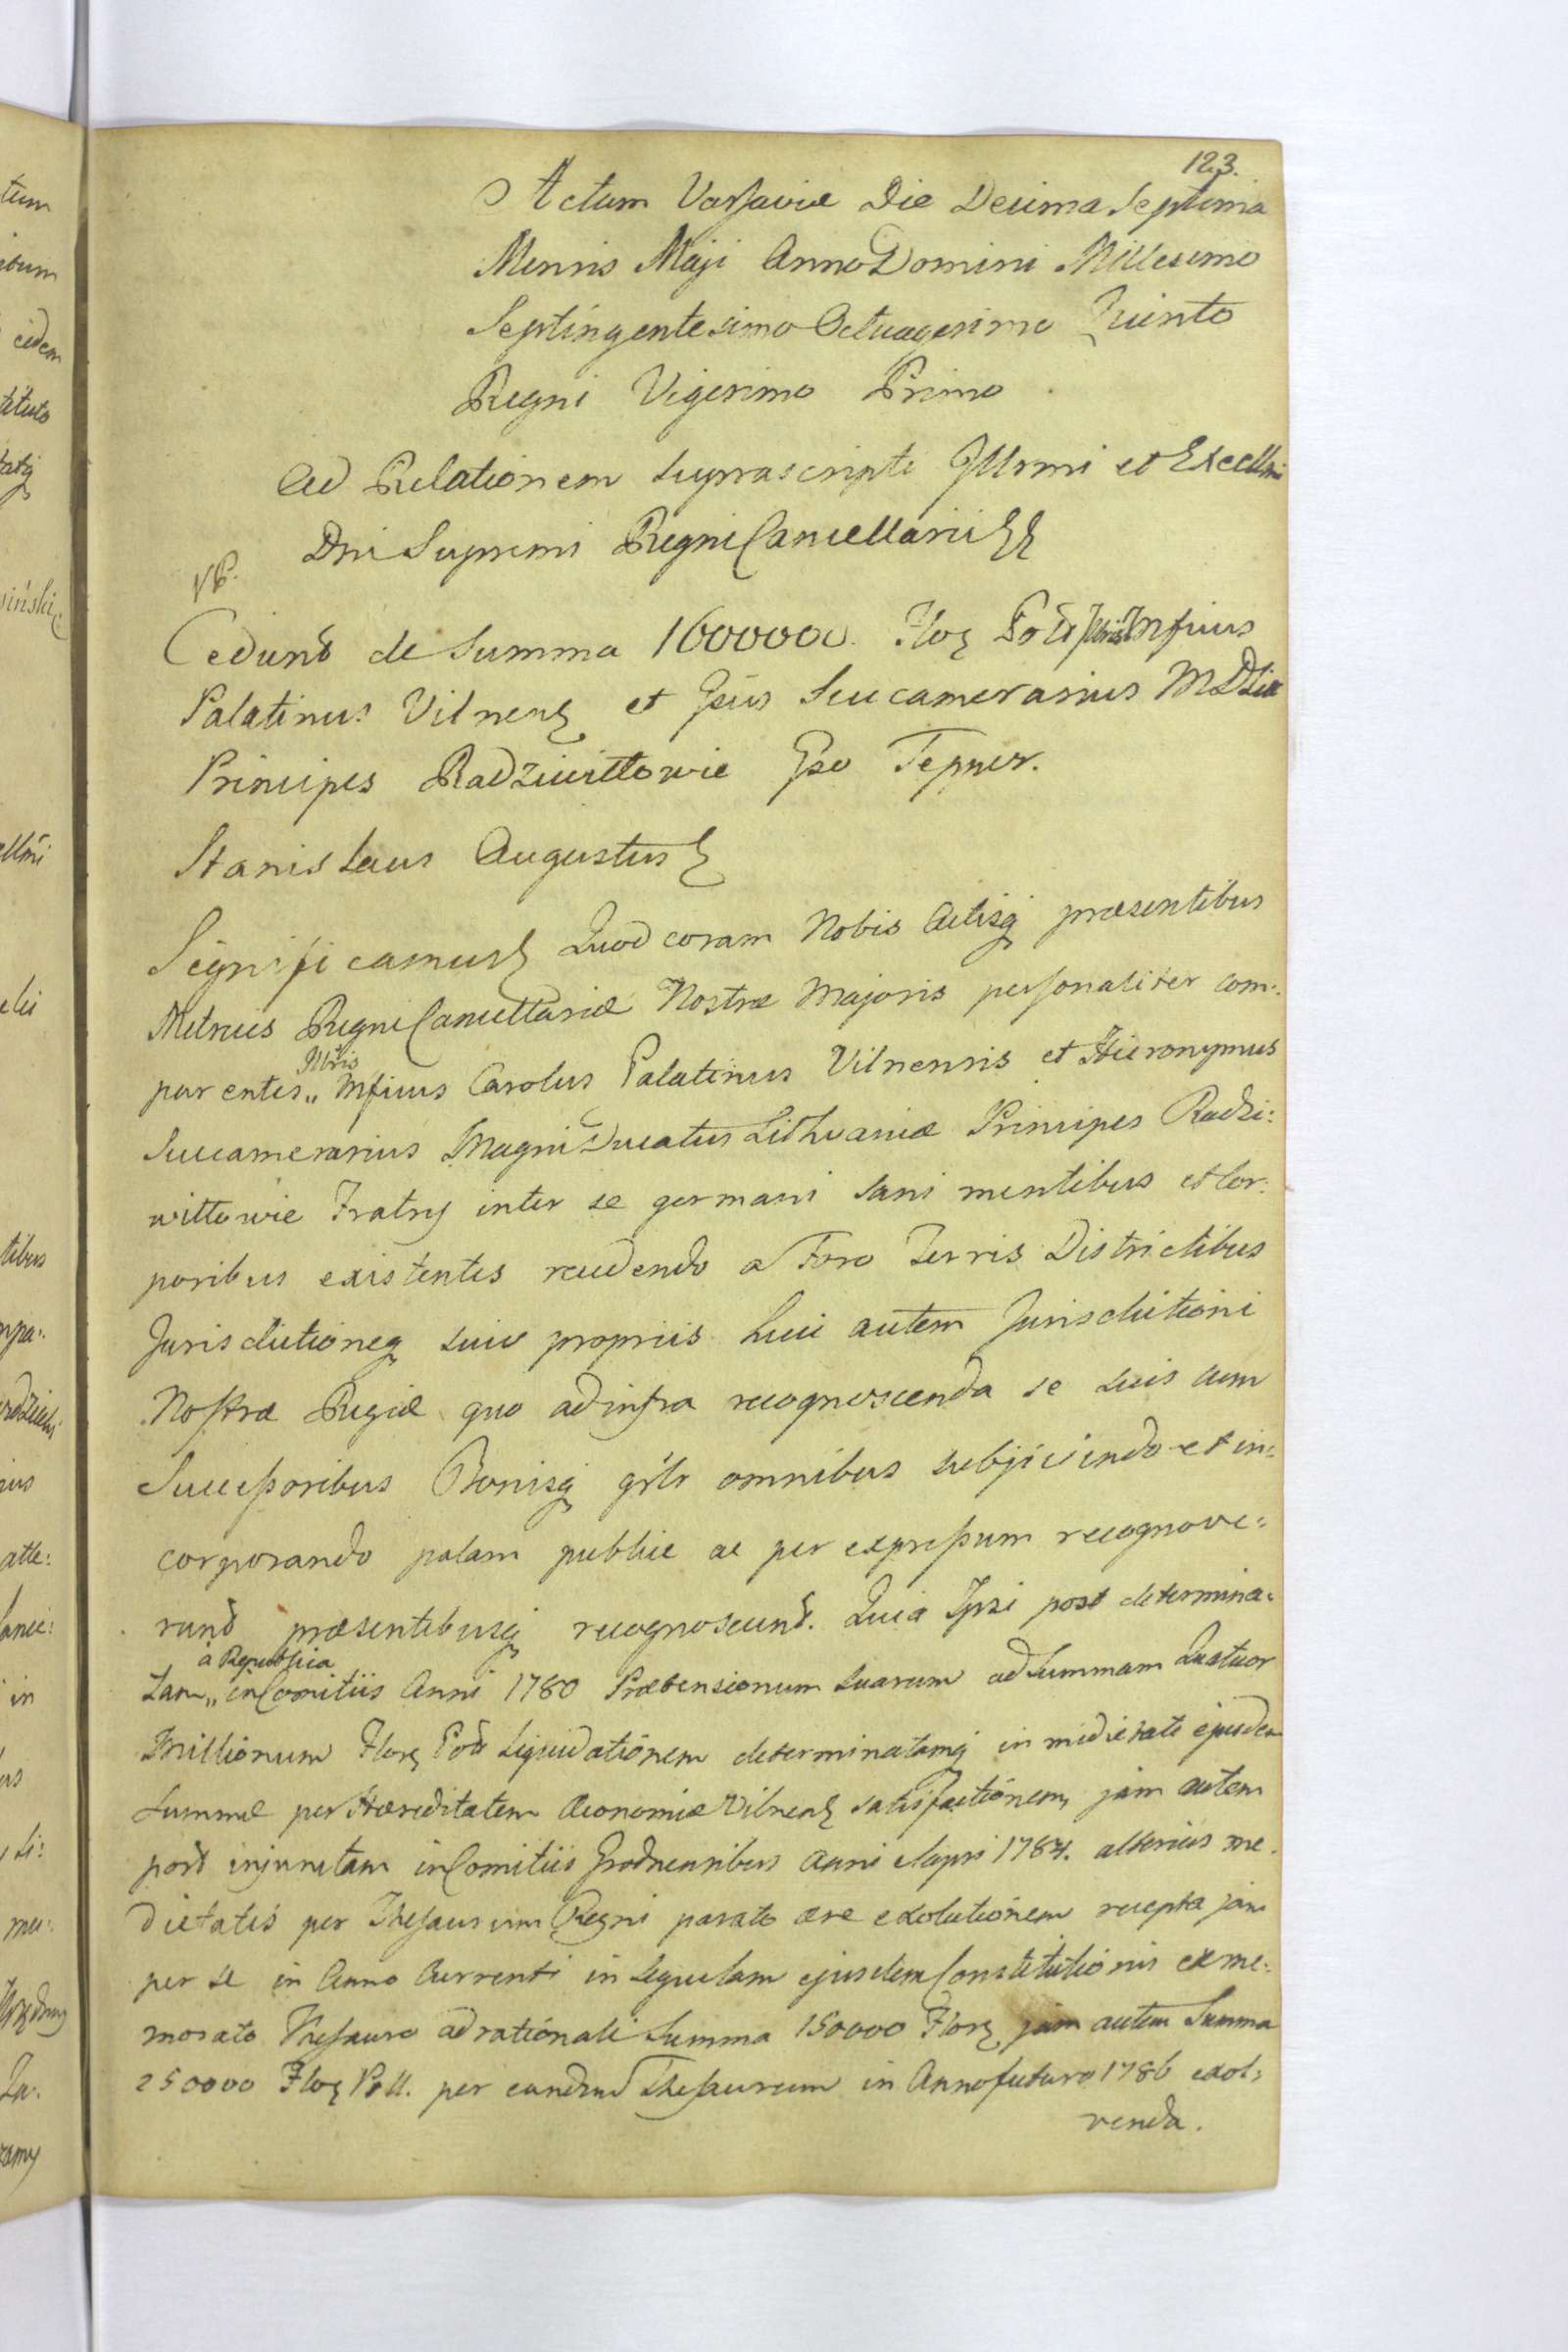 123.
Actum Varsaviæ Die Decima Septima
Mensis Maji Anno Domini Millesimo
Septingentesimo Octuagesimo Quinto
Regni Vigesimo Primo
Ad Relationem suprascripti Jllrmi et Excellmi
Dni Supremi Regni Cancellarii
Cedunt de Summa 1600000. Flor Poll Jllris Mfius
Palatinus Vilnens et Gsus Succamerarius MDLiæ
Principes Radziwiłłowie Gso Tepper.
Stanislaus Augustus
Significamus Quod coram Nobis Actisq præsentibus
Metrices Regni Cancellariæ Nostræ Majoris personaliter com:
parentes „ Jllris Mficus Carolus Palatinus Vilnensis et Hieronymus
Succamerarius Magni Ducatus Lithvaniæ Principes Radzi:
wiłłowie Fratres inter se germani sani mentibus et Cor:
poribus existentes recedendo a Foro Terris Districtibus
Jurisdictioneq suis propriis huic autem Jurisdictioni
Nostræ Regiæ quo ad infra recognoscenda se suis cum
Successoribus Bonisq gnlr omnibus subjiciendo et in:
corporando palam publice ac per expressum recognove:
runt præsentibusq recognoscunt. Quia Ipsi post determina:
tam „ à Republica in Comitiis Anni 1780 Prætensionum suarum ad Summam Quatuor
Millionum Flor Poll Liquidationem determinatamq in medietate ejusdem
Summæ per Hæreditatem Œconomiæ Vilnens satisfactionem, jam autem
post injunctam in Comitiis Grodnensibus Anni elapsi 1784. alterius me:
dietatis per Thesaurum Regni parato ære exolutionem recepta jam
per se in Anno Currenti in sequelam ejusdem Constitutionis ex me:
morato Thesauro ad rationali Summa 150000 Flor, jam autem Summa
250000 Flor Poll. per eundem Thesaurum in Anno futuro 1786 exol:
venda.